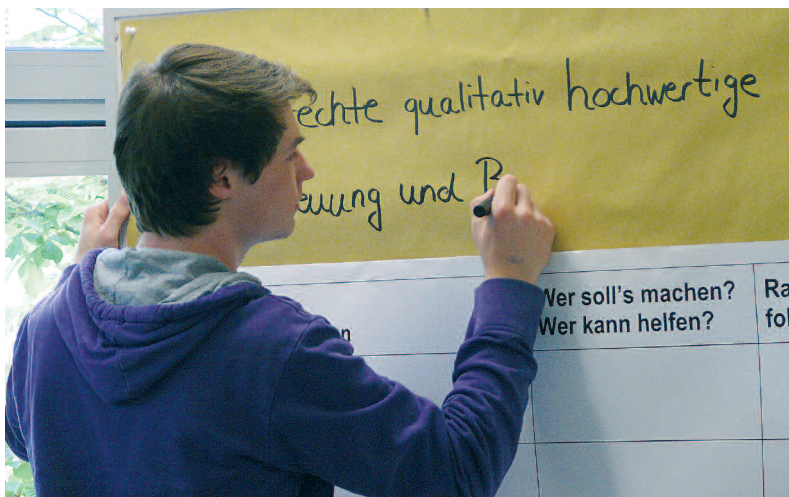 echte qualitativ hochwertige
euung und B
Wer soll's machen?
Wer kann helfen?